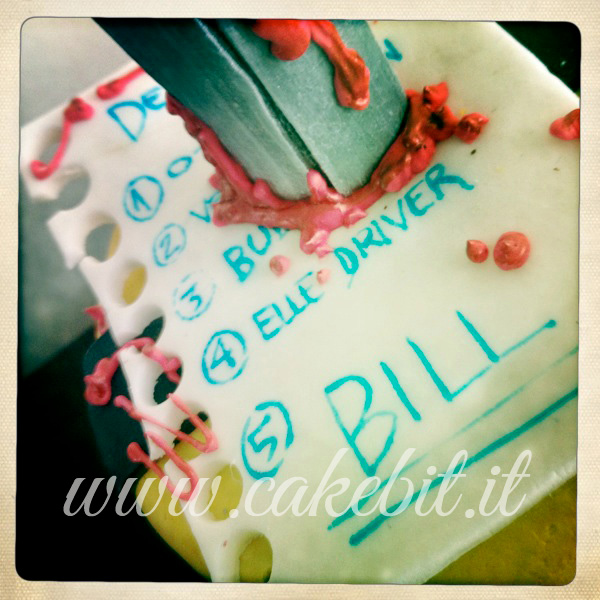 DE
① O
② V
③ BU
④ ELLE DRIVER
⑤ BILL
www.cakebit.it